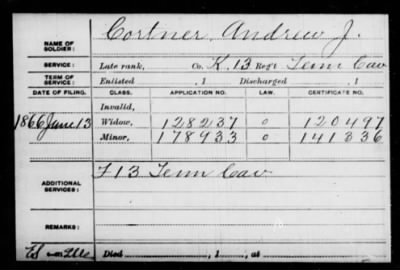 Cortner, Andrew J.
NAME OF SOLDIER:
SERVICE: Late rank, Co. K, 13 Reg't Tenn Cav
TERM OF SERVICE: Enlisted , 1 Discharged , 1
DATE OF FILING. CLASS. APPLICATION NO. LAW. CERTIFICATE NO.
Invalid,
1866 June 13 Widow, 128237 o 120497
Minor, 178933 o 141336
ADDITIONAL SERVICES: F 13 Tenn Cav
REMARKS:
Died , 1 , at